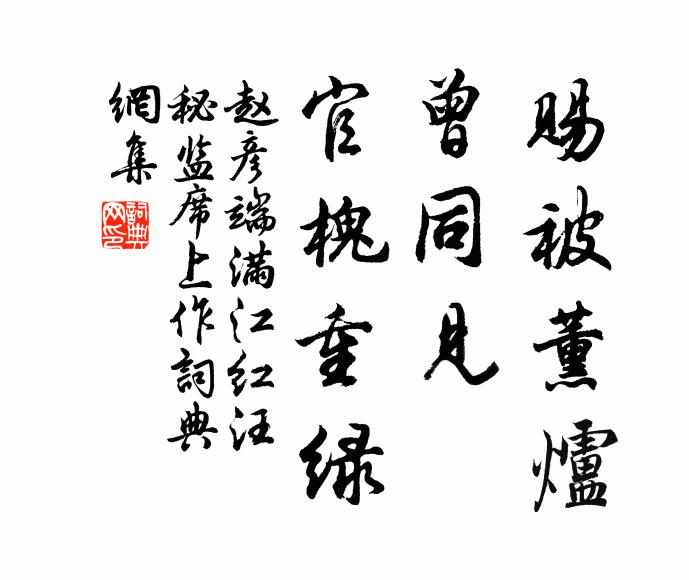 賜被薰爐
曾同見
官槐重绿
赵彦端满江红汪
秘监席上作词典
網集
詞典网印